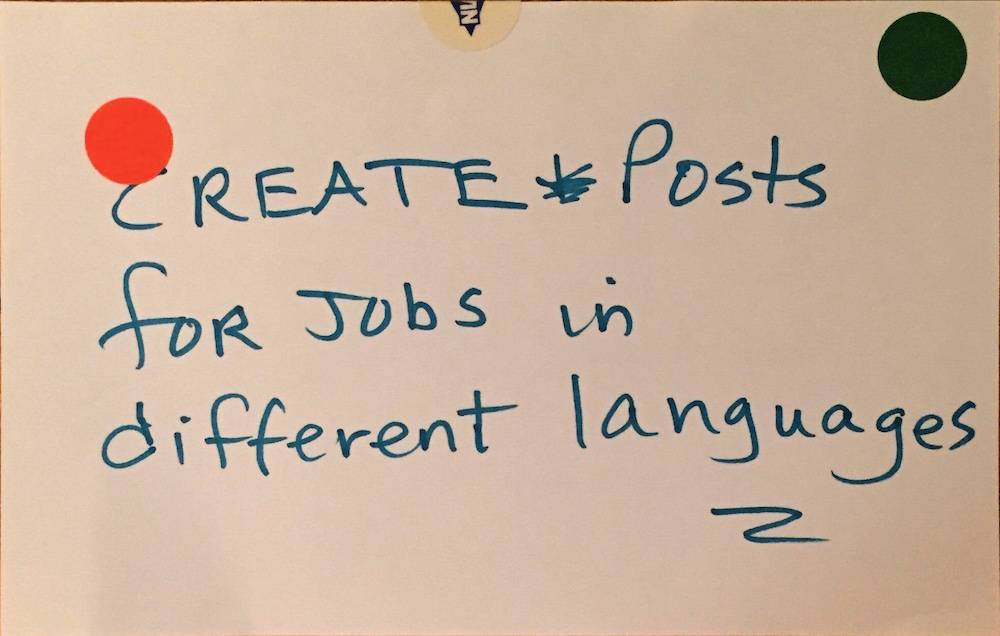 CREATE Posts
for Jobs in
different languages